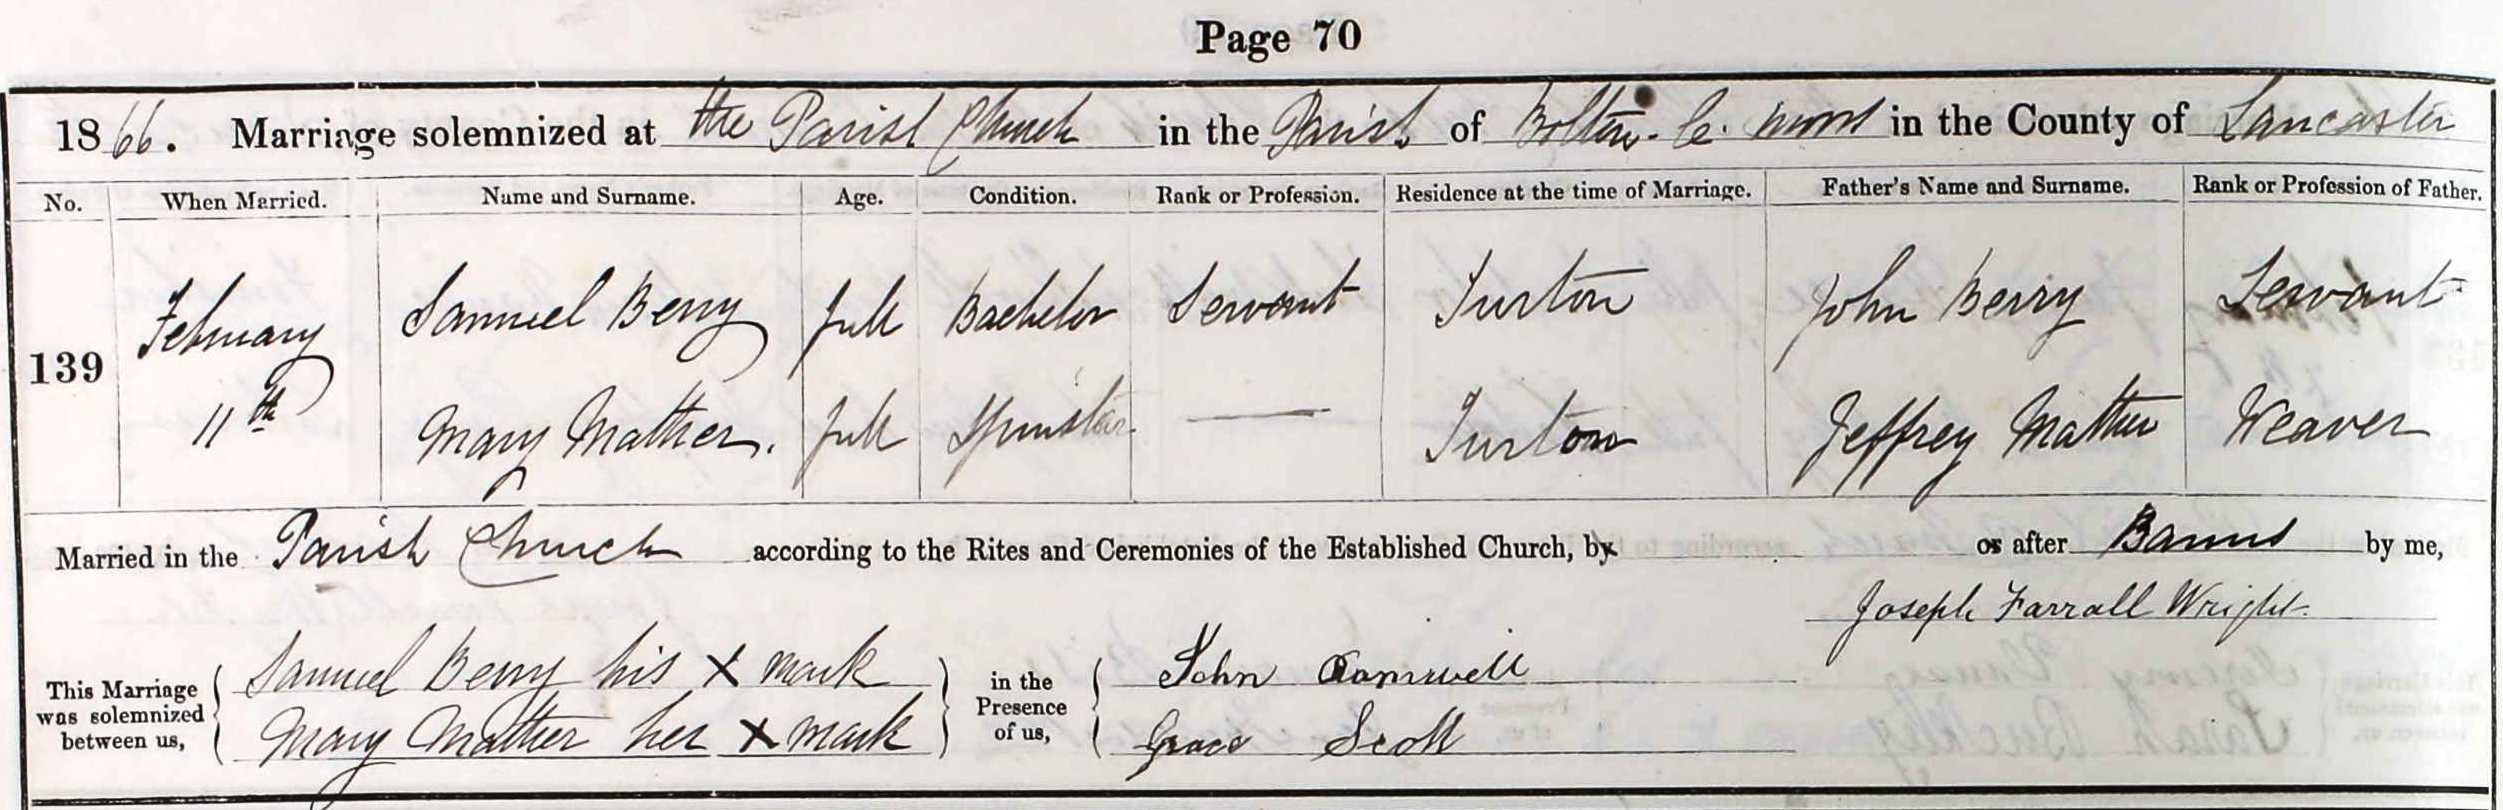 Page 70
1866. Marriage solemnized at the Parish Church in the Parish of Bolton-le-moors in the County of Lancaster
No. When Married. Name and Surname. Age. Condition. Rank or Profession. Residence at the time of Marriage. Father's Name and Surname. Rank or Profession of Father.
139 February 11th Samuel Berry full Bachelor Servant Turton John Berry Servant
Mary Mather. full Spinster — Turton Jeffrey Mather Weaver
Married in the Parish Church according to the Rites and Ceremonies of the Established Church, by or after Banns by me,
Joseph Farrall Wright.
This Marriage was solemnized between us, Samuel Berry his X mark in the Presence of us, John
Mary Mather her X mark Grace Scott